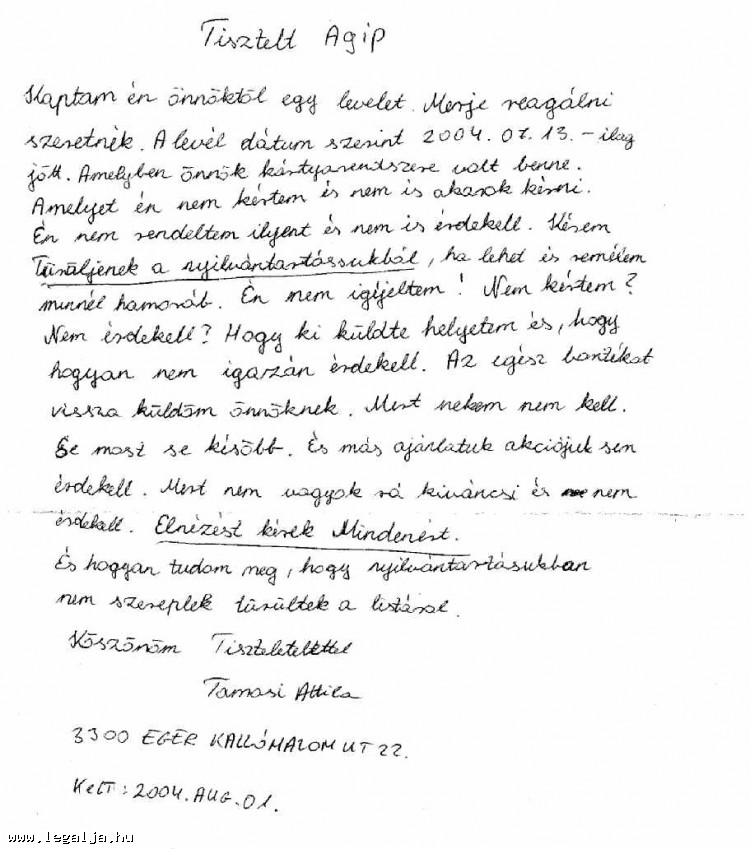 Tisztelt Agip
Kaptam én önnöktöl egy levelet. Merje reagálni
szeretnék. A levél dátum szerint 2004.07.13. - ilag
jött. Amelyben önnök kártyarendszere volt benne.
Amelyet én nem kértem és nem is akarok kérni.
Én nem rendeltem ilyent és nem is érdekell. Kérem
Türüljenek a nyilvántartássukból, ha lehet és remélem
minnél hamoráb. Én nem igéjeltem! Nem kértem?
Nem érdekell? Hogy ki küldte helyetem és, hogy
hogyan nem igarzán érdekell. Az egész borítékot
vissza küldöm önnöknek. Mert nekem nem kell.
Se most se késöbb. És más ajánlatuk akciójuk sen
érdekell. Mert nem vagyok rá kiváncsi és nem
érdekell. Elnézést kérek Mindenért.
És hoggan tudom meg, hogy nyilvántartásukban
nem szereplek türültek a listárol.
Köszönöm Tiszteletelettel
Tamasi Attila
3300 EGER KALLÓMALOM UT 22.
Kelt: 2004. AUG. 01.
www.legalja.hu